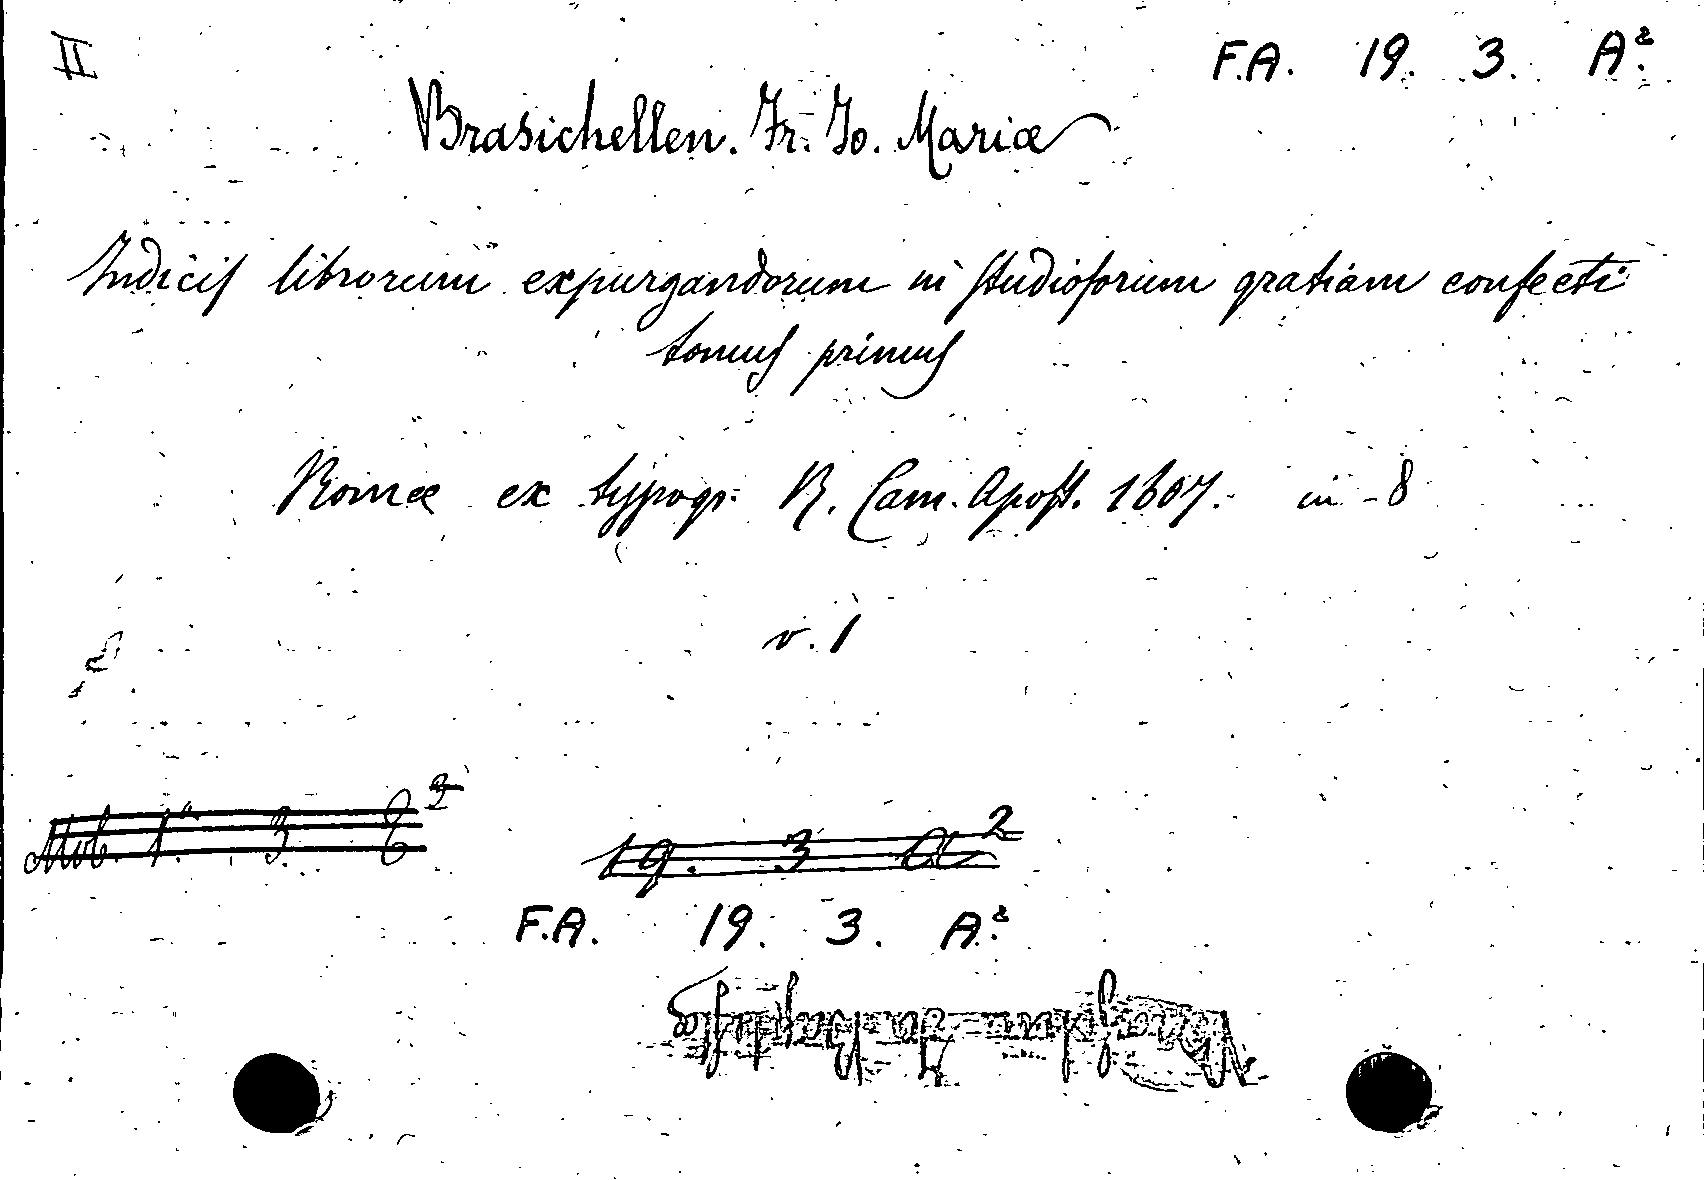 II
F.A. 19. 3. A².
Brasichellen. Fr. Jo. Mariæ
Indicis librorum expurgandorum in studiosorum gratiam confecti
tomus primus
Romæ ex typogr. R. Cam. Apost. 1607. in-8
v. 1
Mob. 1ª 3 E²
19. 3 A²
F.A. 19. 3. A².